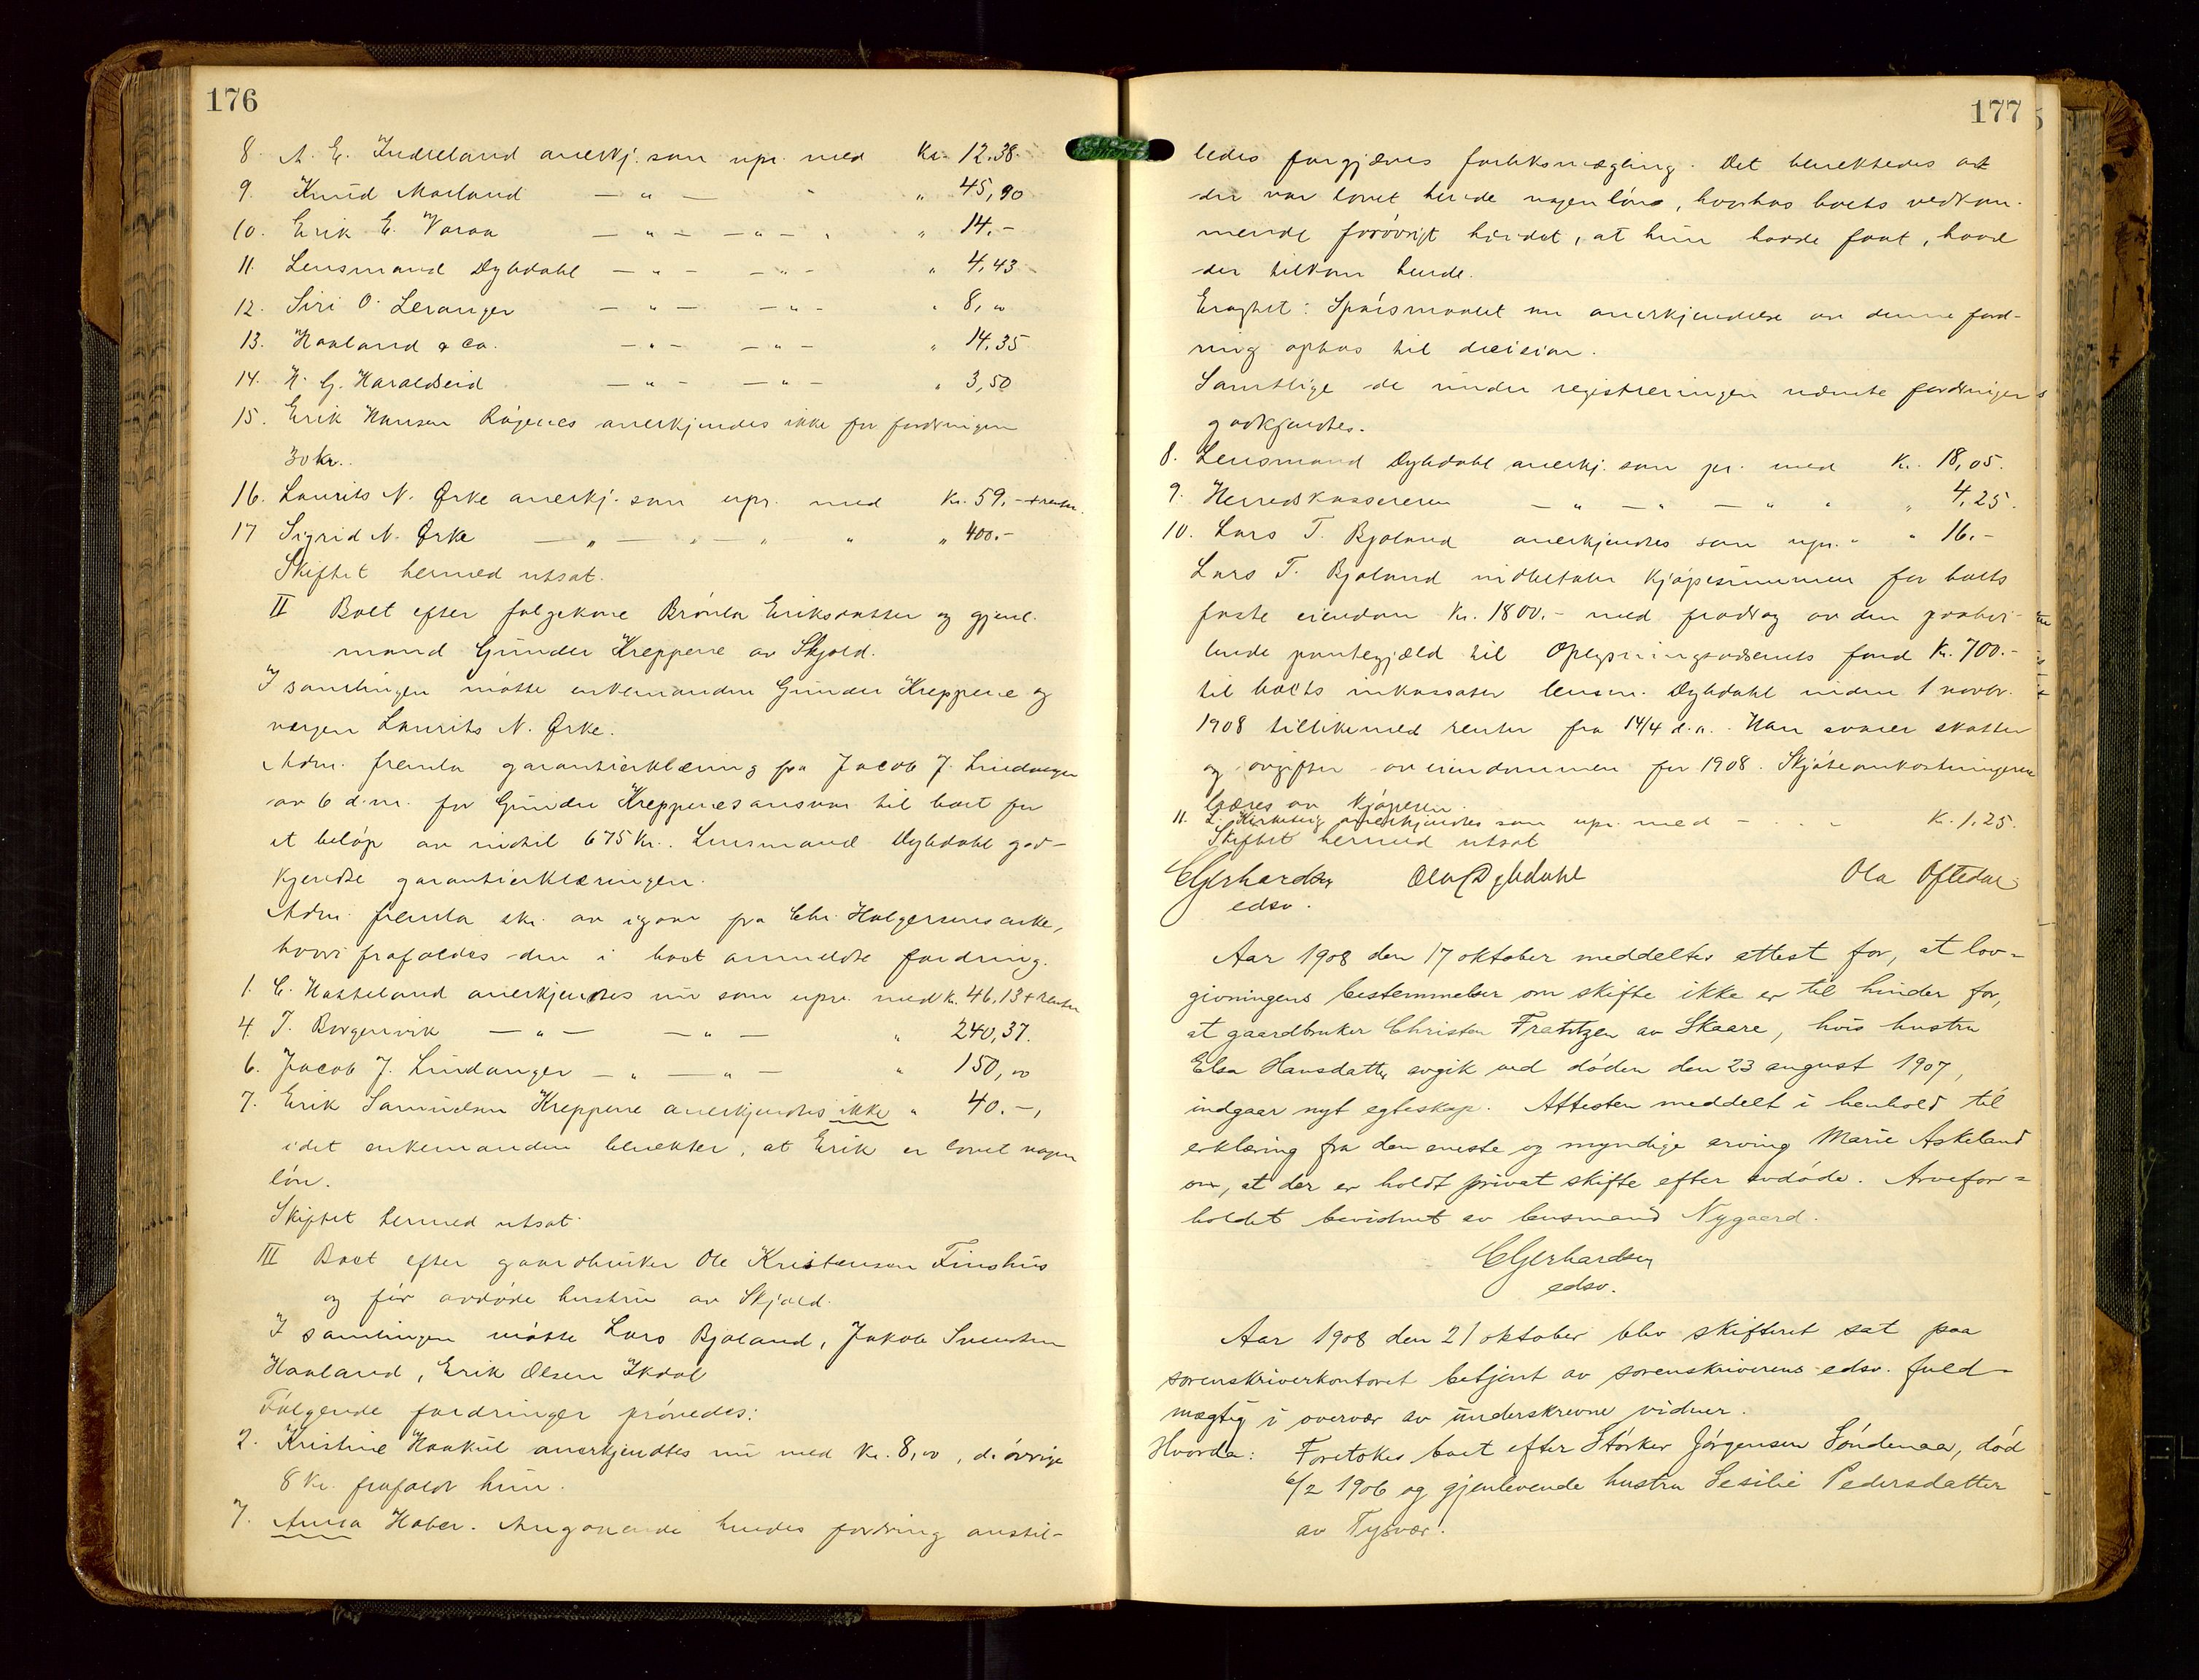 176
8. A. E. Indreland anerkj. som upr. med Kr. 12.38.
9. Knud Marland — " — " 45,90
10. Erik E. Varaa — " — — " — " 14.-
11. Lensmand Dybdahl — " — — " — " 4,43
12. Siri O. Leranger — " — — " — " 8,00
13. Haaland & Co. — " — — " — " 14,35
14. H. G. Haraldseid — " — — " — " 3,50
15. Erik Hansen Rágenes anerkjendes ikke for fordringen
30 kr.
16. Laurits N. Ørke anerkj. som upr. med Kr. 59.- + renter.
17 Sigrid N. Ørke — " — " — " " " 400.-
Skiftet hermed utsat.
II Boet efter folgekone Brónla Eriksdatter og gjenl.
mand Gunder Kreppene av Skjold.
I samlingen mótte enkemanden Gunder Kreppene og
vergen Laurits N. Ørke.
Adm. fremla garantierklæring fra Jacob J. Lindanger
av 6 d.m. for Gunder Kreppenes ansvar til boet for
et belóp av indtil 675 Kr. Lensmand Dybdahl god-
kjendte garantierklæringen.
Adm. fremla skr. av igaar fra Chr. Holgersens enke,
hvori frafaldes den i boet anmeldte fordring.
1. C. Hasseland anerkjendtes nu som upr. med Kr. 46,13 + renter
4. T. Borgenvik — " — — " — " 240,37.
6. Jacob J. Lindanger — " — — " — " 150,00
7. Erik Samuelsen Kreppene anerkjendtes ikke " 40.-,
idet enkemanden benekter, at Erik er lovet nogen
lón.
Skiftet hermed utsat.
III Boet efter gaardbruker Ole Kristensen Finshus
og fór avdóde hustru av Skjold.
I samlingen mótte Lars Bjoland, Jakob Svendsen
Haaland, Erik Olsen Ikdal
Fólgende fordringer próvedes:
2. Kristine Haakul anerkjendtes nu med Kr. 8,00, de óvrige
8 Kr. frafaldt hun.
7. Anna Haber. Angaaende hendes fordring anstil-
177
ledes forgjæves forliksmægling. Det benektedes at
der var lovet hende nogen lóns, hvorhos boets vedkom-
mende foróvrigt hævdet, at hun hadde faat, hvad
der tilkom hende.
Eragtet: Spórsmaalet om anerkjendelse av denne ford-
ring optas til decision.
Samtlige de under registreringen nævnte fordringer
godkjendtes.
8. Lensmand Dybdahl anerkj. som pr. med Kr. 18,05.
9. Herredskassereren — " — " — " " " 4,25.
10. Lars T. Bjoland anerkjendtes som upr. " " 16.-
Lars T. Bjoland indbetaler kjópesummen for boets
faste eiendom Kr. 1800.- med fradrag av den paahvi-
lende pantegjæld til Oplysningsvæsenets fond Kr. 700.-
til boets inkassator lensm. Dybdahl inden 1 novbr.
1908 tillikemed renter fra 14/4 d.a. Han svarer skatter
og avgifter av eiendommen for 1908. Skjóteomkostningerne
bæres av kjóperen.
11. L. Kirkeberg anerkjendtes som upr. med - . . - Kr. 1.25.
Skiftet hermed utsat
CGerhardsen Ola Dybdahl Ola Oftedal
edsv.
Aar 1908 den 17 oktober meddeltes attest for, at lov-
givningens bestemmelser om skifte ikke er til hinder for,
at gaardbruker Christen Frantzen av Skaare, hvis hustru
Elsa Hansdatter avgik ved dóden den 23 august 1907,
indgaar nyt egteskap. Attesten meddelt i henhold til
erklæring fra den eneste og myndige arving Marie Askeland
om, at der er holdt privat skifte efter avdóde. Arvefor-
holdet bevidnet av lensmand Nygaard.
CGerhardsen
edsv.
Aar 1908 den 21 oktober blev skifteret sat paa
sorenskriverkontoret betjent av sorenskriverens edsv. fuld-
mægtig i overvær av underskrevne vidner.
Hvorda: Foretokes boet efter Stórker Jórgensen Sóndenaa, dód
6/2 1906 og gjenlevende hustru Sesilie Pedersdatter
av Tysvær.